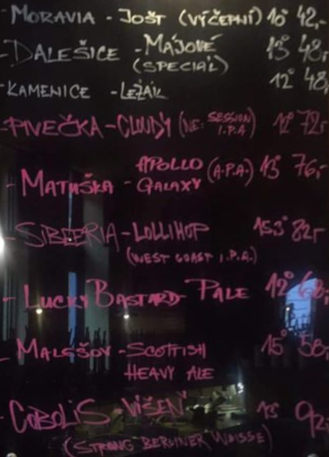 - MORAVIA - JOŠT (VÝČEPNÍ) 10° 42,-
- DALEŠICE - MÁJOVÉ 13° 48,-
(SPECIÁL)
- KAMENICE - LEŽÁK 12° 48,-
- PIVEČKA - CLOUDY (NE: SESSION I.P.A) 72,-
APOLLO (A.P.A) 13° 76,-
- MATUŠKA - GALAXY
- SIBEERIA - LOLLIHOP 15,3° 82,-
(WEST COAST I.P.A.)
- LUCKY BASTARD PALE 12° 68,-
- MALEŠOV - SCOTTISH 15° 58,-
HEAVY ALE
- COBOLIS - VIŠEŇ
(STRONG BERLINER WEISSE)